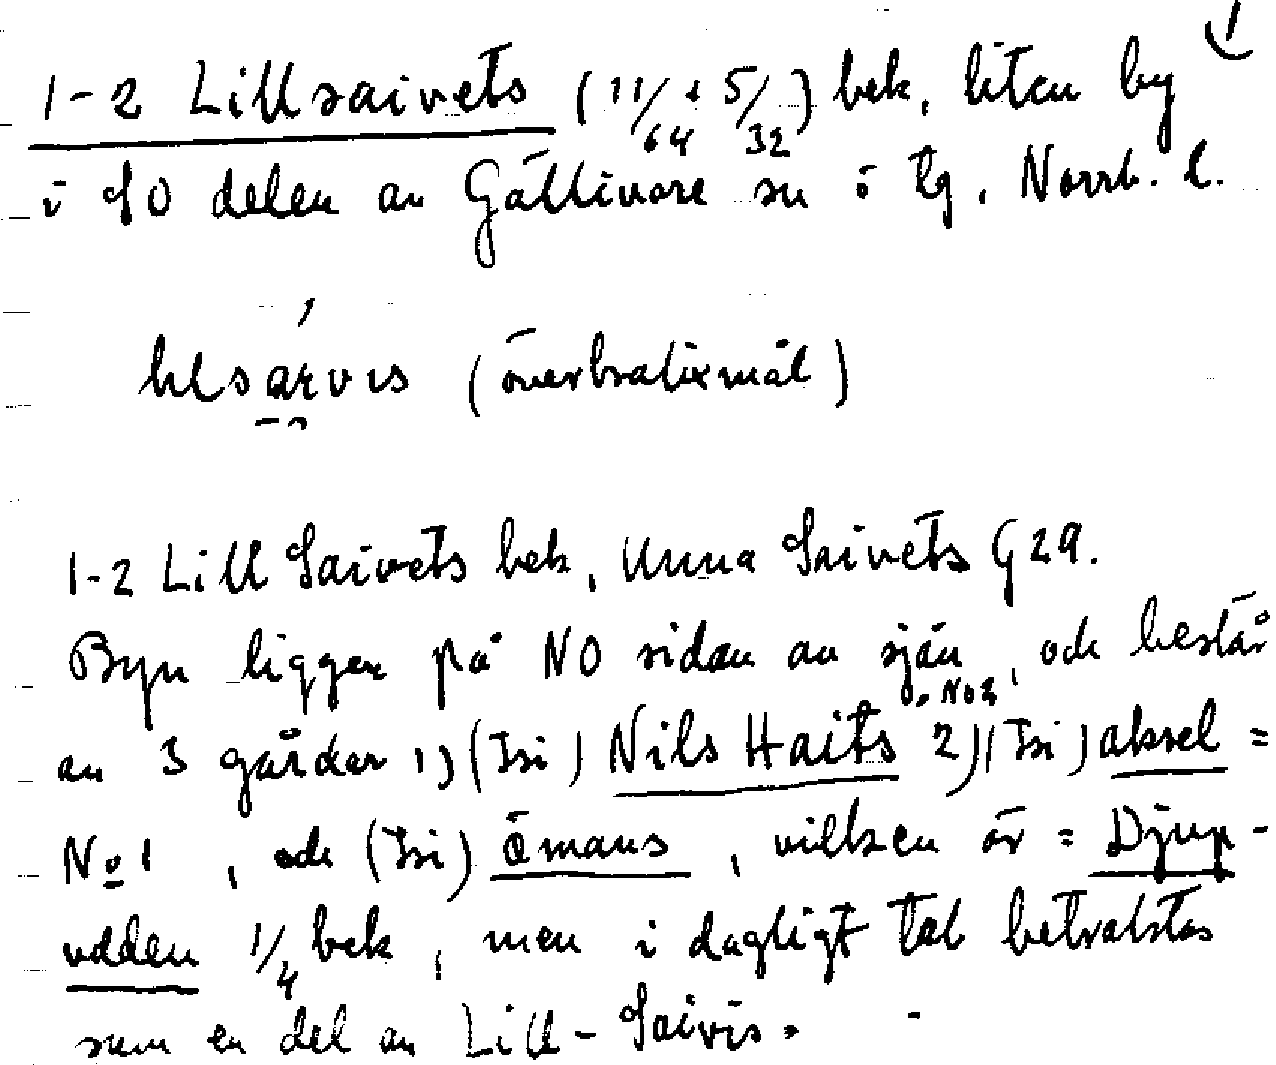 1-2 Lillsaivets (11/64 + 5/32) bek, liten by
i SO delen av Gällivare sn ö tg. Norrb. l.
(överkalixmål)
1-2 Lill Saivets bek, Unna Saivets G29.
Byn ligger på NO sidan av sjön, och består
av 3 gårdar 1) (Isi) Nils Haits o. No2 2) (Isi) aksel =
No 1, och (Isi) ömans, vilken är = Djup-
udden 1/4 bek, men i dagligt tal betraktas
som en del av Lill-Saivis.